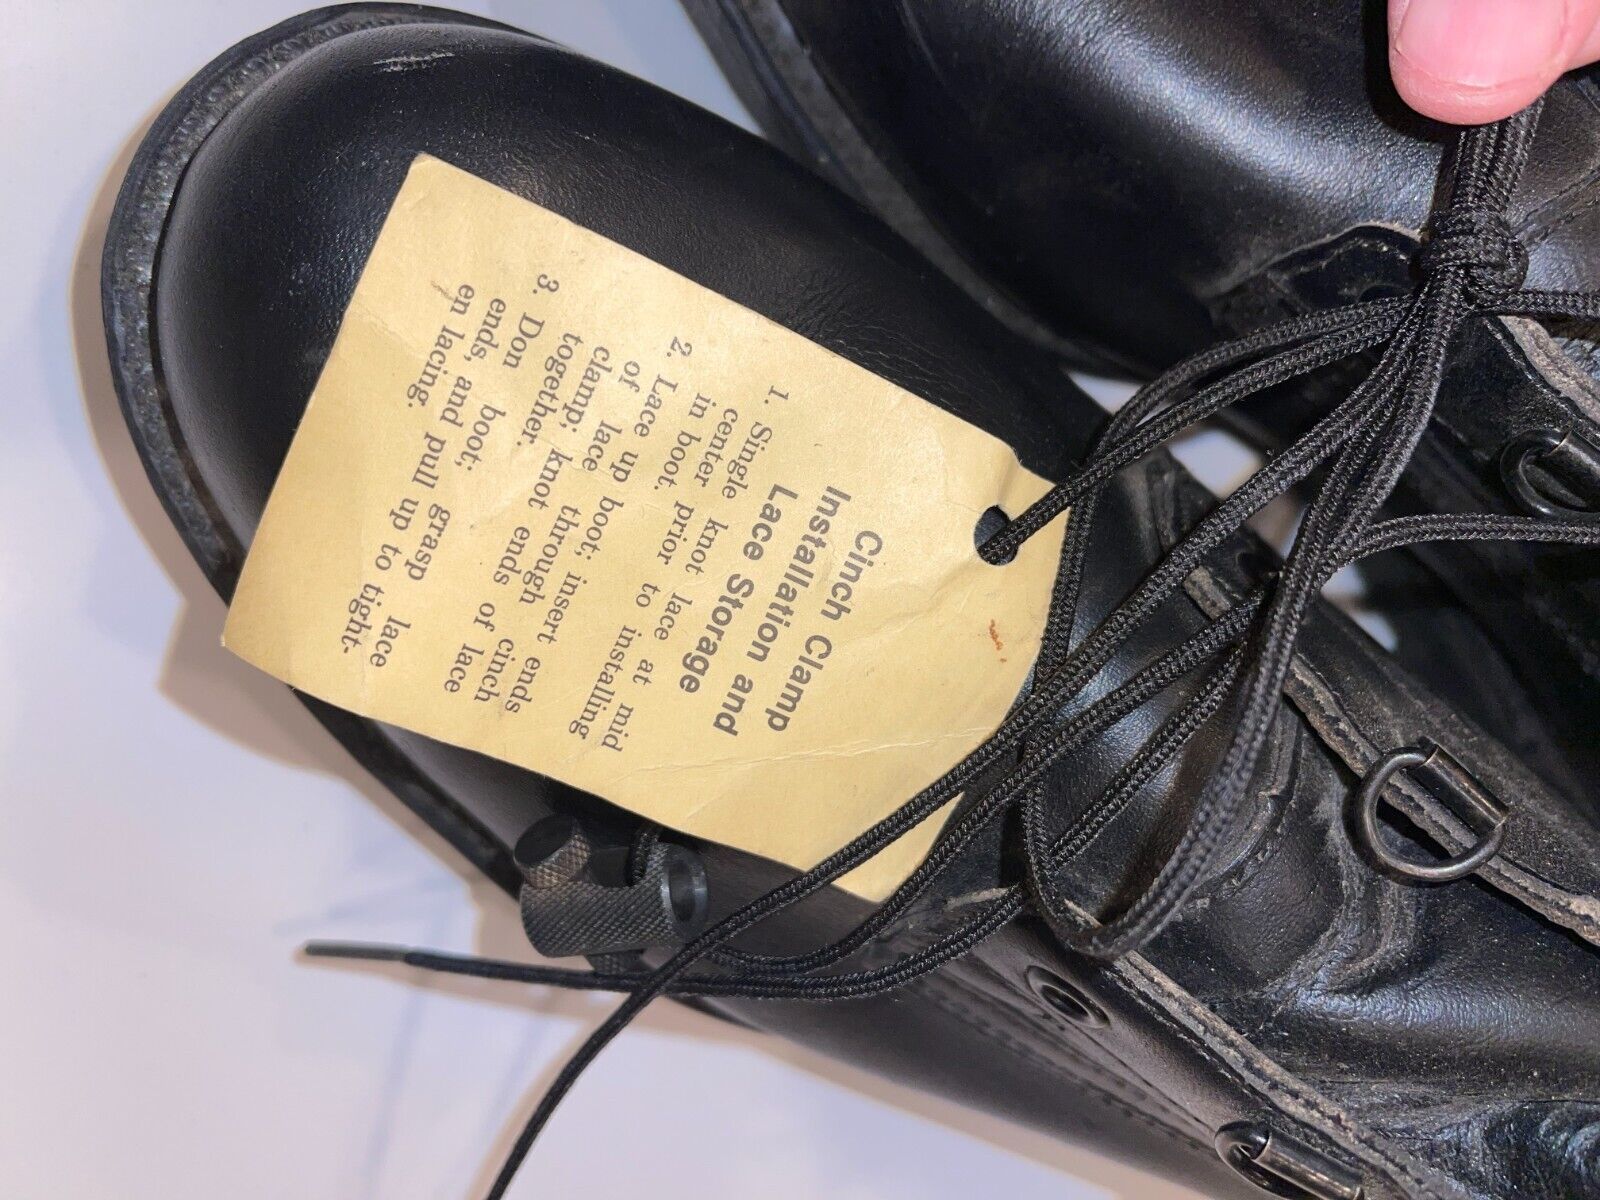 Cinch Clamp
Installation and
Lace Storage
1. Single knot lace at mid
center prior to installing
in boot.
2. Lace up boot; insert ends
of lace through cinch
clamp; knot ends of lace
together.
3. Don boot; grasp lace
ends, and pull up to tight-
en lacing.